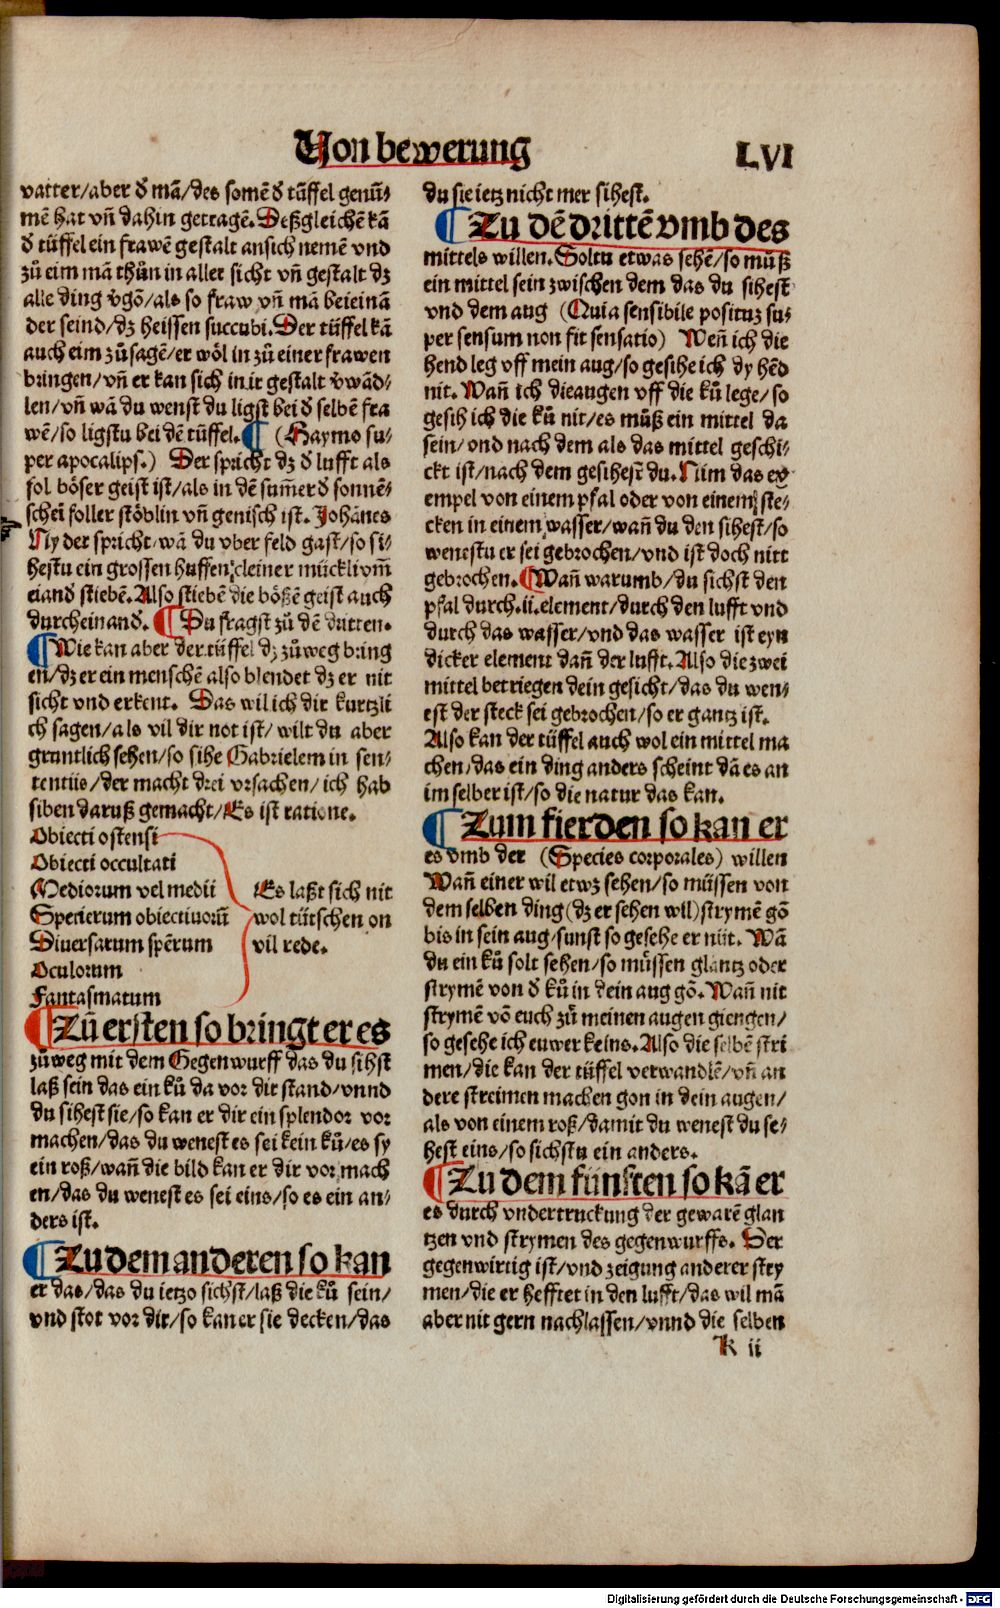 Von bewerung
LVI
vatter/aber đ mā/des somē đ tüffel genum̄⸗
mē hat vn̄ dahin getragē. Deßgleichē kā
đ tüffel ein frawē gestalt ansich nemē vnd
zů eim mā thůn in aller sicht vn̄ gestalt dz
alle ding v̄gō/als so fraw vn̄ mā beieinā
der seind/dz heissen succubi. Der tüffel kā
auch eim zůsagē/er wöl in zů einer frawen
bringen/vn̄ er kan sich in ir gestalt v̄wād⸗
len/vn̄ wā du wenst du ligst bei đ selbē fra
wē/so ligstu bei dē tüffel. ¶ (Haymo su⸗
per apocalips.) Der spricht dz đ lufft als
fol böser geist ist/als in dē sum̄er đ sonnē⸗
schei foller stöblin vn̄ genisch ist. Johānes
Niy der spricht/wā du vber feld gast/so si⸗
hestu ein grossen huffen cleiner mückli vm̄
einād stiebē. Also stiebē die bößē geist auch
durcheinand. ¶ Du fragst zů dē dritten.
¶ Wie kan aber der tüffel dz zůweg bring
en/dz er ein menschē also blendet dz er nit
sicht vnd erkent. Das wil ich dir kurtzli
ch sagen/als vil dir not ist/wilt du aber
gruntlich sehen/so sihe Gabrielem in sen⸗
tentiis/der macht drei vrsachen/ich hab
siben daruß gemacht/Es ist ratione.
Obiecti ostensi
Obiecti occultati
Mediorum vel medii
Specierum obiectiuorū
Diuersarum spērum
Oculorum
Fantasmatum
Es laßt sich nit
wol tütschen on
vil rede.
¶ Zů ersten so bringt er es
zůweg mit dem Gegenwurff das du sihst
laß sein das ein ků da vor dir stand/vnnd
du sihest sie/so kan er dir ein splendor vor
machen/das du wenest es sei kein ků/es sy
ein roß/wan̄ die bild kan er dir vor mach
en/das du wenest es sei eins/so es ein an⸗
ders ist.
¶ Zu dem anderen so kan
er das/das du ietzo sichst/laß die ků sein/
vnd stot vor dir/so kan er sie decken/das
du sie ietz nicht mer sihest.
¶ Zu dē drittē vmb des
mittels willen. Soltu etwas sehē/so můß
ein mittel sein zwischen dem das du sihest
vnd dem aug (Quia sensibile posituz su⸗
per sensum non fit sensatio) Wen̄ ich die
hend leg vff mein aug/so gesihe ich dy hēd
nit. Wan̄ ich die augen vff die ků lege/so
gesih ich die ků nit/es můß ein mittel da
sein/vnd nach dem als das mittel geschi⸗
ckt ist/nach dem gesihest du. Nim das ex⸗
empel von einem pfal oder von einem ste⸗
cken in einem wasser/wan̄ du den sihest/so
wenestu er sei gebrochen/vnd ist doch nitt
gebrochen. ¶ Wan̄ warumb/du sichst den
pfal durch .ii. element/durch den lufft vnd
durch das wasser/vnd das wasser ist eyn
dicker element dan̄ der lufft. Also die zwei
mittel betriegen dein gesicht/das du wen⸗
est der steck sei gebrochen/so er gantz ist.
Also kan der tüffel auch wol ein mittel ma
chen/das ein ding anders scheint dā es an
im selber ist/so die natur das kan.
¶ Zum fierden so kan er
es vmb der (Species corporales) willen
Wan̄ einer wil etwz sehen/so müssen von
dem selben ding (dz er sehen wil) strymē gō
bis in sein aug/sunst so gesehe er nüt. Wā
du ein ků solt sehen/so müssen glantz oder
strymē von đ ků in dein aug gō. Wan̄ nit
strymē vō euch zů meinen augen giengen/
so gesehe ich euwer keins. Also die selbē stri
men/die kan der tüffel verwandlē/vn̄ an
dere streimen machen gon in dein augen/
als von einem roß/damit du wenest du se⸗
hest eins/so sichstu ein anders.
¶ Zu dem fünften so kā er
es durch vndertruckung der gewarē glan
tzen vnd strymen des gegenwurffs. Der
gegenwirtig ist/vnd zeigung anderer stry
men/die er hefftet in den lufft/das wil mā
aber nit gern nachlassen/vnnd die selben
K ii
Digitalisierung gefördert durch die Deutsche Forschungsgemeinschaft - DFG